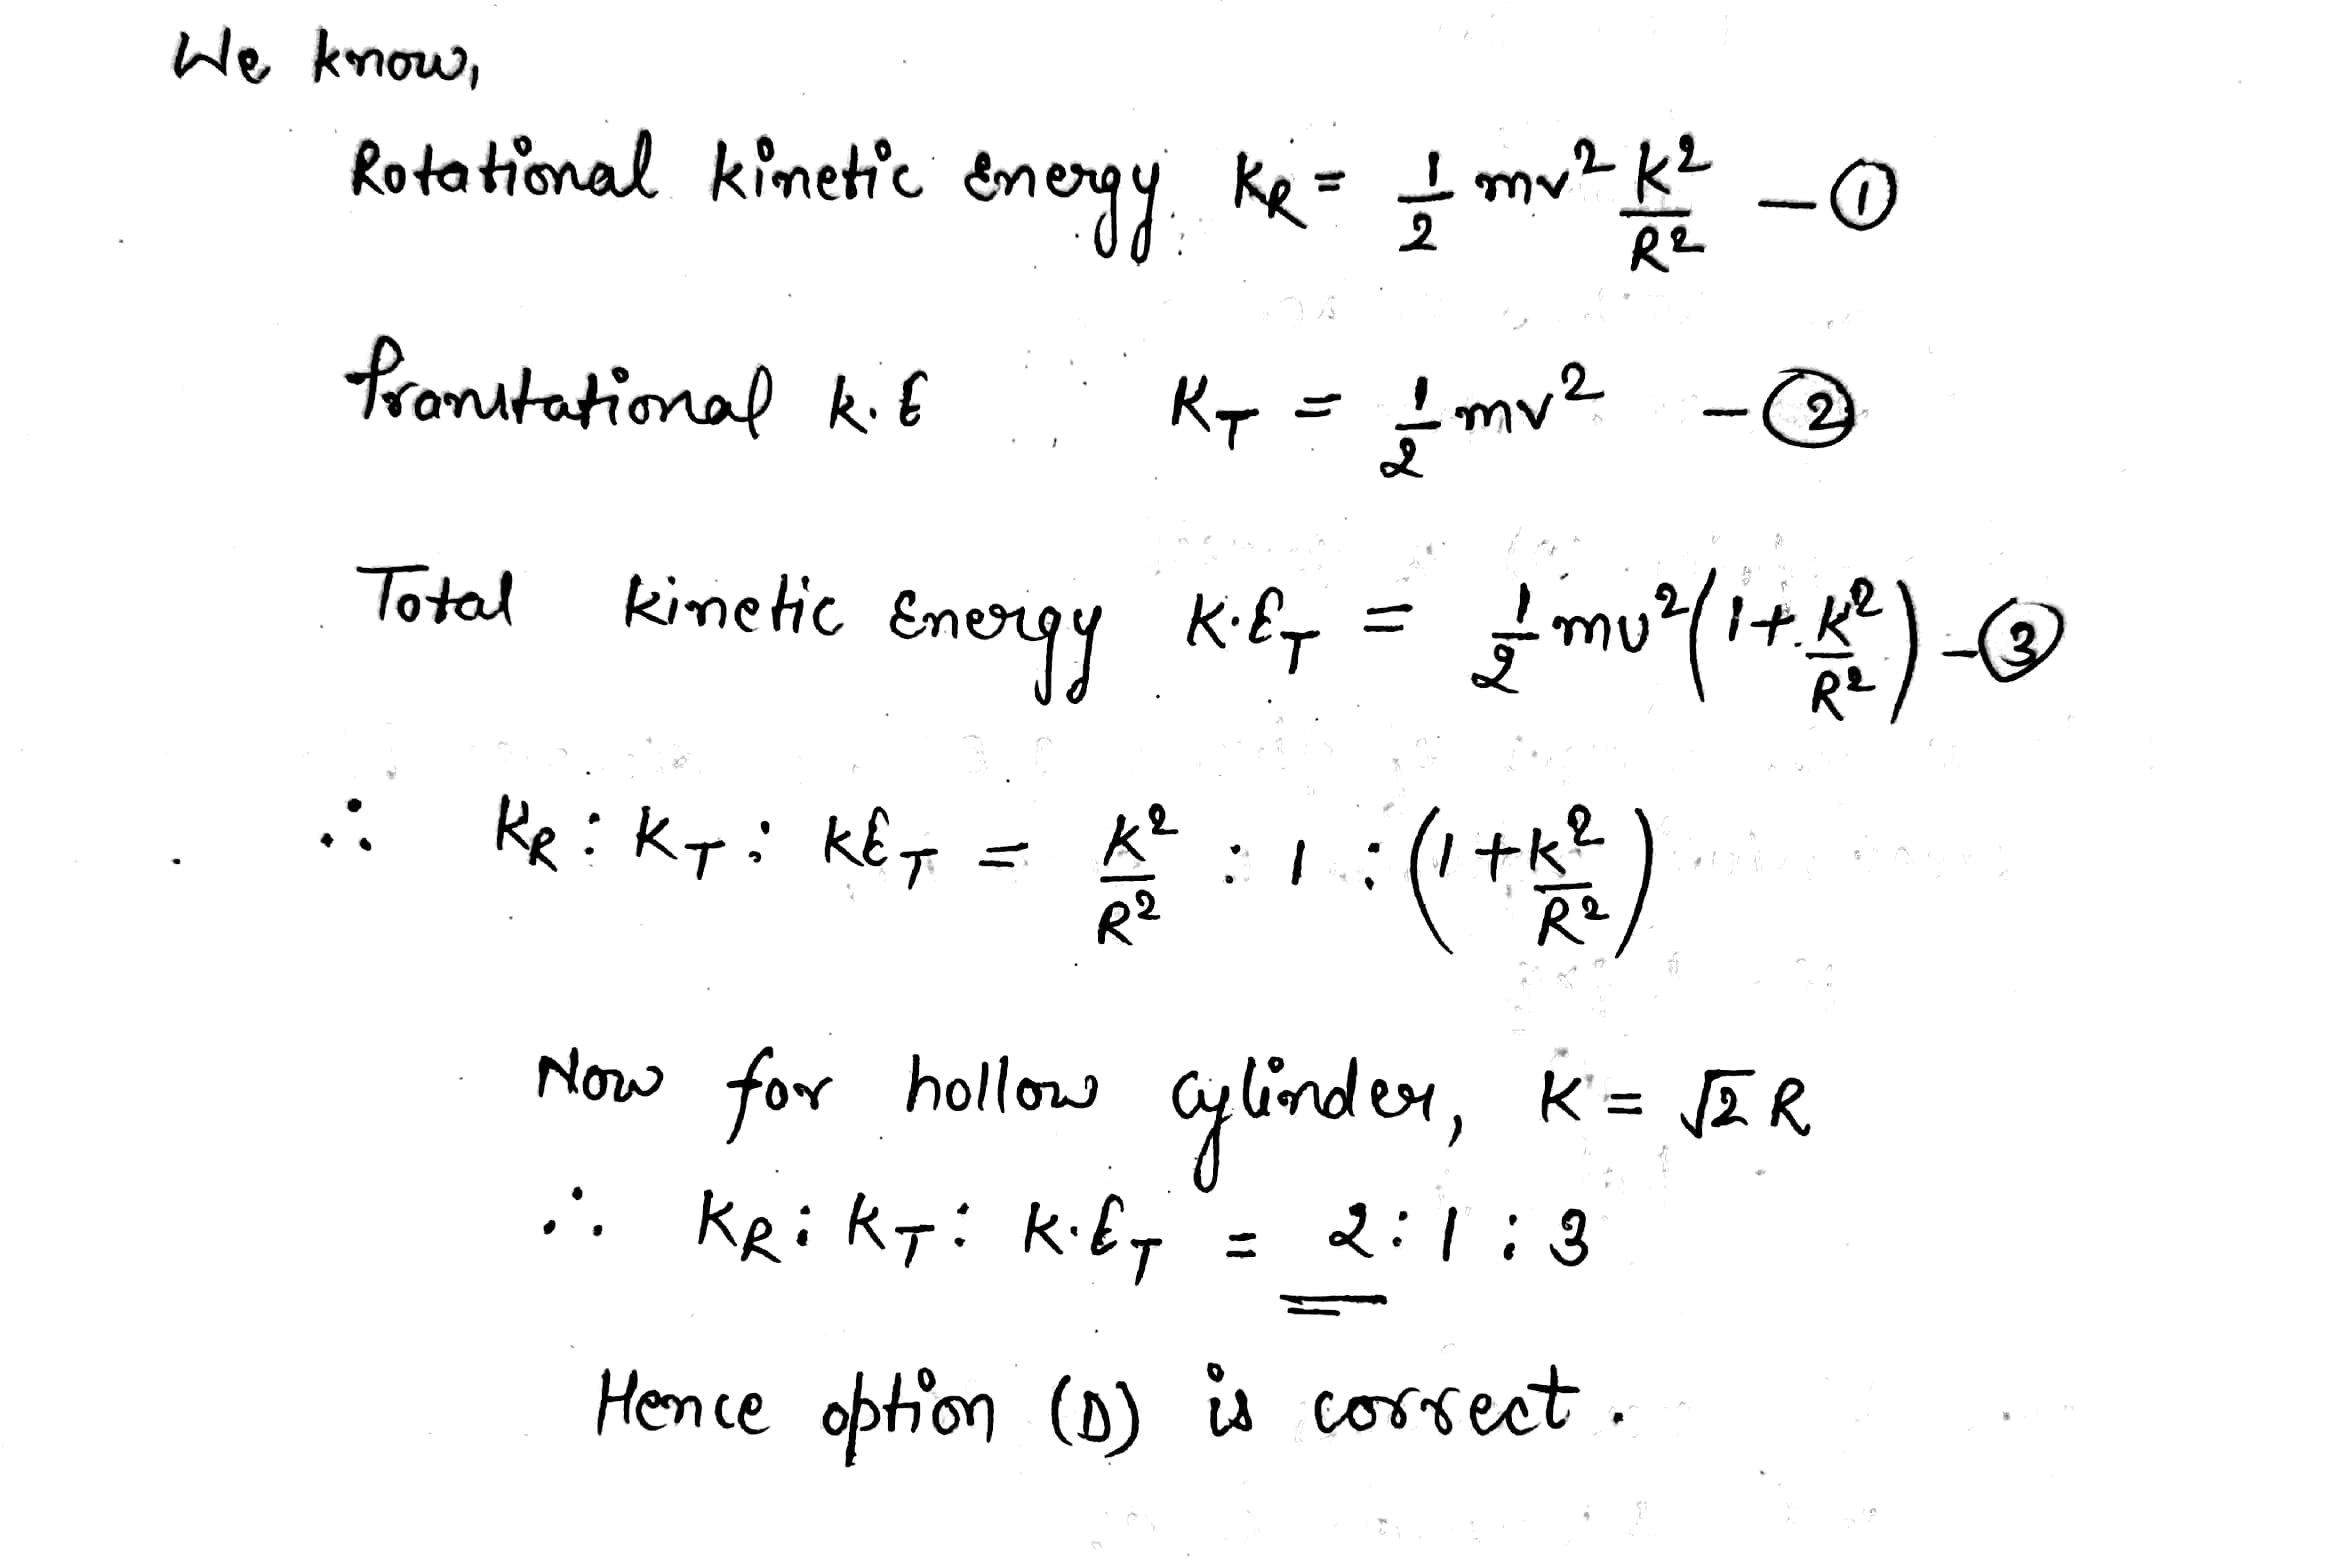 We know,
Rotational kinetic energy K_R = 1/2 mv² K²/R² – ①
Translational K.E K_T = 1/2 mv² – ②
Total kinetic energy K.E_T = 1/2 mv² (1 + K²/R²) – ③
∴ K_R : K_T : KE_T = K²/R² : 1 : (1 + K²/R²)
Now for hollow cylinder, K = √2 R
∴ K_R : K_T : K.E_T = 2 : 1 : 3
Hence option (D) is correct.